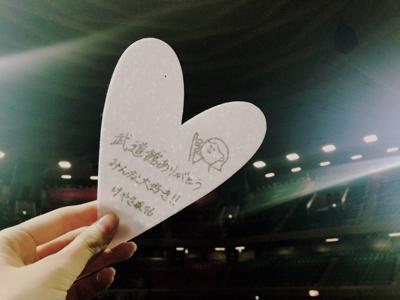 武道館ありがとう
みんな大好き!!
けやき坂46